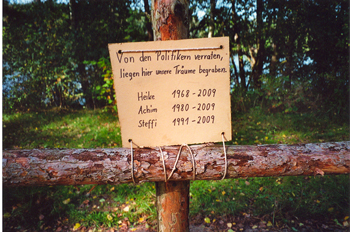 Von den Politikern verraten,
liegen hier unsere Träume begraben.
Heike 1968-2009
Achim 1980-2009
Steffi 1991-2009